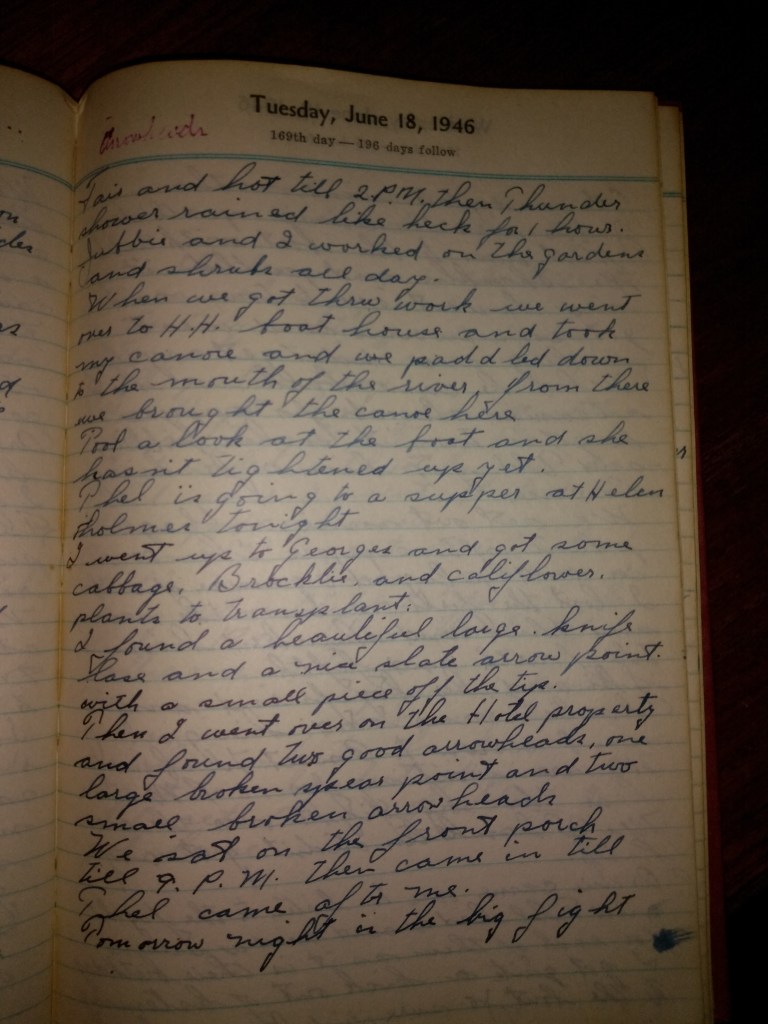 Tuesday, June 18, 1946
Arrowheads
169th day — 196 days follow
Fair and hot till 2 P.M. then Thunder
shower rained like heck for 1 hour.
Jubbie and I worked on the gardens
and shrubs all day.
When we got thru work we went
over to H.H. boat house and took
my canoe and we paddled down
to the mouth of the river, from there
we brought the canoe here
Took a look at the boat and she
hasn't tightened up yet.
Phel is going to a supper at Helen
Holmes tonight
I went up to Georges and got some
cabbage, Brocklie, and califlower.
plants to transplant.
I found a beautiful large knife
base and a nice slate arrow point.
with a small piece off the tip.
Then I went over on the Hotel property
and found two good arrowheads, one
large broken spear point and two
small broken arrowheads
We sat on the front porch
till 9. P.M. then came in till
Phel came after me.
Tomorrow night is the big fight